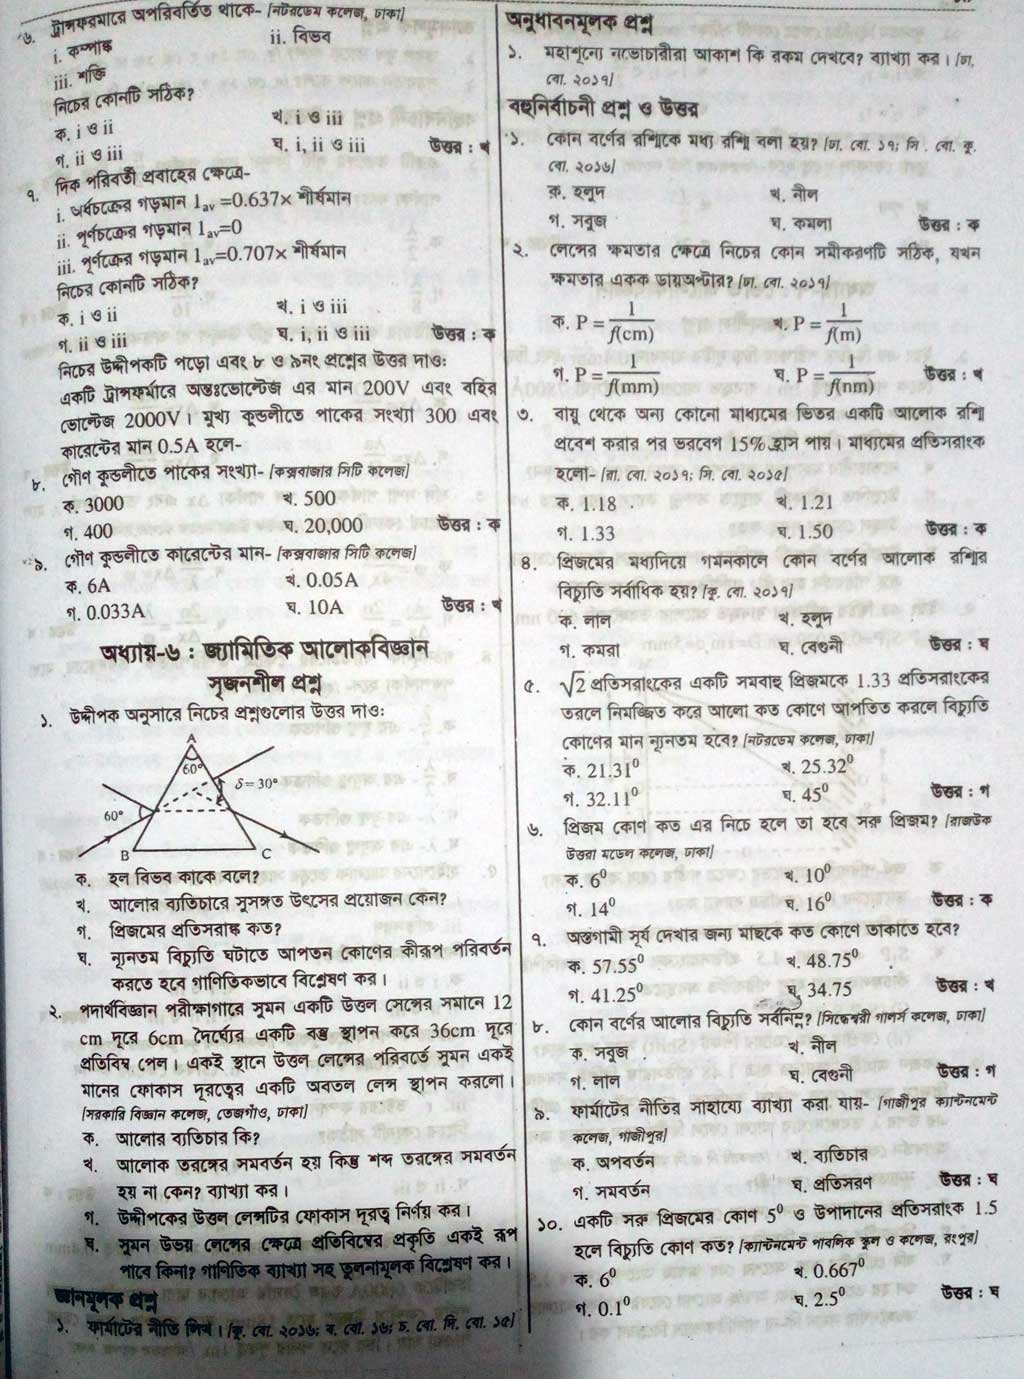 ৬. ট্রান্সফরমারে অপরিবর্তিত থাকে- [নটরডেম কলেজ, ঢাকা]
i. কম্পাঙ্ক ii. বিভব
iii. শক্তি
নিচের কোনটি সঠিক?
ক. i ও ii খ. i ও iii
গ. ii ও iii ঘ. i, ii ও iii উত্তর : খ
৭. দিক পরিবর্তী প্রবাহের ক্ষেত্রে-
i. অর্ধচক্রের গড়মান I_av =0.637× শীর্ষমান
ii. পূর্ণচক্রের গড়মান I_av=0
iii. পূর্ণচক্রের গড়মান I_av=0.707× শীর্ষমান
নিচের কোনটি সঠিক?
ক. i ও ii খ. i ও iii
গ. ii ও iii ঘ. i, ii ও iii উত্তর : ক
নিচের উদ্দীপকটি পড়ো এবং ৮ ও ৯নং প্রশ্নের উত্তর দাও:
একটি ট্রান্সফর্মারে অন্তঃভোল্টেজ এর মান 200V এবং বহির
ভোল্টেজ 2000V। মুখ্য কুন্ডলীতে পাকের সংখ্যা 300 এবং
কারেন্টের মান 0.5A হলে-
৮. গৌণ কুন্ডলীতে পাকের সংখ্যা- [কক্সবাজার সিটি কলেজ]
ক. 3000 খ. 500
গ. 400 ঘ. 20,000 উত্তর : ক
৯. গৌণ কুন্ডলীতে কারেন্টের মান- [কক্সবাজার সিটি কলেজ]
ক. 6A খ. 0.05A
গ. 0.033A ঘ. 10A উত্তর : খ
অধ্যায়-৬ : জ্যামিতিক আলোকবিজ্ঞান
সৃজনশীল প্রশ্ন
১. উদ্দীপক অনুসারে নিচের প্রশ্নগুলোর উত্তর দাও:
A
60°
δ= 30°
60°
B C
ক. হল বিভব কাকে বলে?
খ. আলোর ব্যতিচারে সুসঙ্গত উৎসের প্রয়োজন কেন?
গ. প্রিজমের প্রতিসরাঙ্ক কত?
ঘ. ন্যূনতম বিচ্যুতি ঘটাতে আপতন কোণের কীরূপ পরিবর্তন
করতে হবে গাণিতিকভাবে বিশ্লেষণ কর।
২. পদার্থবিজ্ঞান পরীক্ষাগারে সুমন একটি উত্তল লেন্সের সমানে 12
cm দূরে 6cm দৈর্ঘ্যের একটি বস্তু স্থাপন করে 36cm দূরে
প্রতিবিম্ব পেল। একই স্থানে উত্তল লেন্সের পরিবর্তে সুমন একই
মানের ফোকাস দূরত্বের একটি অবতল লেন্স স্থাপন করলো।
[সরকারি বিজ্ঞান কলেজ, তেজগাঁও, ঢাকা]
ক. আলোর ব্যতিচার কি?
খ. আলোক তরঙ্গের সমবর্তন হয় কিন্তু শব্দ তরঙ্গের সমবর্তন
হয় না কেন? ব্যাখ্যা কর।
গ. উদ্দীপকের উত্তল লেন্সটির ফোকাস দূরত্ব নির্ণয় কর।
ঘ. সুমন উভয় লেন্সের ক্ষেত্রে প্রতিবিম্বের প্রকৃতি একই রূপ
পাবে কিনা? গাণিতিক ব্যাখ্যা সহ তুলনামূলক বিশ্লেষণ কর।
জ্ঞানমূলক প্রশ্ন
১. ফার্মাটের নীতি লিখ। [কু. বো. ২০১৬; ব. বো. ১৬; চ. বো. সি. বো. ১৫]
অনুধাবনমূলক প্রশ্ন
১. মহাশূন্যে নভোচারীরা আকাশ কি রকম দেখবে? ব্যাখ্যা কর। [ঢা.
বো. ২০১৭]
বহুনির্বাচনী প্রশ্ন ও উত্তর
১. কোন বর্ণের রশ্মিকে মধ্য রশ্মি বলা হয়? [ঢা. বো. ১৭; সি . বো. কু.
বো. ২০১৬]
ক. হলুদ খ. নীল
গ. সবুজ ঘ. কমলা উত্তর : ক
২. লেন্সের ক্ষমতার ক্ষেত্রে নিচের কোন সমীকরণটি সঠিক, যখন
ক্ষমতার একক ডায়অপ্টার? [ঢা. বো. ২০১৭]
ক. P = 1/f(cm) খ. P = 1/f(m)
গ. P = 1/f(mm) ঘ. P = 1/f(nm) উত্তর : খ
৩. বায়ু থেকে অন্য কোনো মাধ্যমের ভিতর একটি আলোক রশ্মি
প্রবেশ করার পর তরবেগ 15% হ্রাস পায়। মাধ্যমের প্রতিসরাংক
হলো- [রা. বো. ২০১৭; সি. বো. ২০১৫]
ক. 1.18 খ. 1.21
গ. 1.33 ঘ. 1.50 উত্তর : ক
৪. প্রিজমের মধ্যদিয়ে গমনকালে কোন বর্ণের আলোক রশ্মির
বিচ্যুতি সর্বাধিক হয়? [কু. বো. ২০১৭]
ক. লাল খ. হলুদ
গ. কমরা ঘ. বেগুনী উত্তর : ঘ
৫. √2 প্রতিসরাংকের একটি সমবাহু প্রিজমকে 1.33 প্রতিসরাংকের
তরলে নিমজ্জিত করে আলো কত কোণে আপতিত করলে বিচ্যুতি
কোণের মান ন্যূনতম হবে? [নটরডেম কলেজ, ঢাকা]
ক. 21.31⁰ খ. 25.32⁰
গ. 32.11⁰ ঘ. 45⁰ উত্তর : গ
৬. প্রিজম কোণ কত এর নিচে হলে তা হবে সরু প্রিজম? [রাজউক
উত্তরা মডেল কলেজ, ঢাকা]
ক. 6⁰ খ. 10⁰
গ. 14⁰ ঘ. 16⁰ উত্তর : ক
৭. অস্তগামী সূর্য দেখার জন্য মাছকে কত কোণে তাকাতে হবে?
ক. 57.55⁰ খ. 48.75⁰
গ. 41.25⁰ ঘ. 34.75 উত্তর : খ
৮. কোন বর্ণের আলোর বিচ্যুতি সর্বনিম্ন? [সিদ্ধেশ্বরী গার্লস কলেজ, ঢাকা]
ক. সবুজ খ. নীল
গ. লাল ঘ. বেগুনী উত্তর : গ
৯. ফার্মাটের নীতির সাহায্যে ব্যাখ্যা করা যায়- [গাজীপুর ক্যান্টনমেন্ট
কলেজ, গাজীপুর]
ক. অপবর্তন খ. ব্যতিচার
গ. সমবর্তন ঘ. প্রতিসরণ উত্তর : ঘ
১০. একটি সরু প্রিজমের কোণ 5⁰ ও উপাদানের প্রতিসরাংক 1.5
হলে বিচ্যুতি কোণ কত? [ক্যান্টনমেন্ট পাবলিক স্কুল ও কলেজ, রংপুর]
ক. 6⁰ খ. 0.667⁰
গ. 0.1⁰ ঘ. 2.5⁰ উত্তর : ঘ